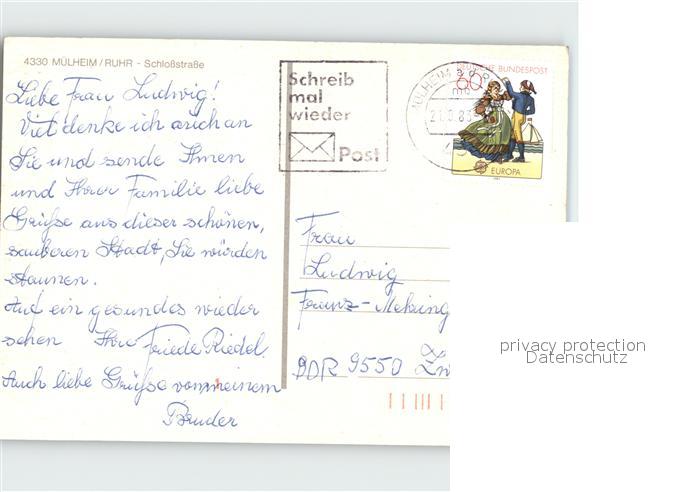 4330 MÜLHEIM/RUHR - Schloßstraße
Liebe Frau Ludwig!
Viel denke ich auch an
Sie und sende Ihnen
und Ihrer Familie liebe
Grüße aus dieser schönen,
sauberen Stadt, Sie würden
staunen.
Auf ein gesundes wieder
sehen Ihre Friede Riedel
Auch liebe Grüße von meinem
Bruder
Schreib
mal
wieder
Post
MÜLHEIM
DEUTSCHE BUNDESPOST
60
EUROPA
Frau
Ludwig
Franz-Mehring
DDR 9550 Zw
privacy protection
Datenschutz